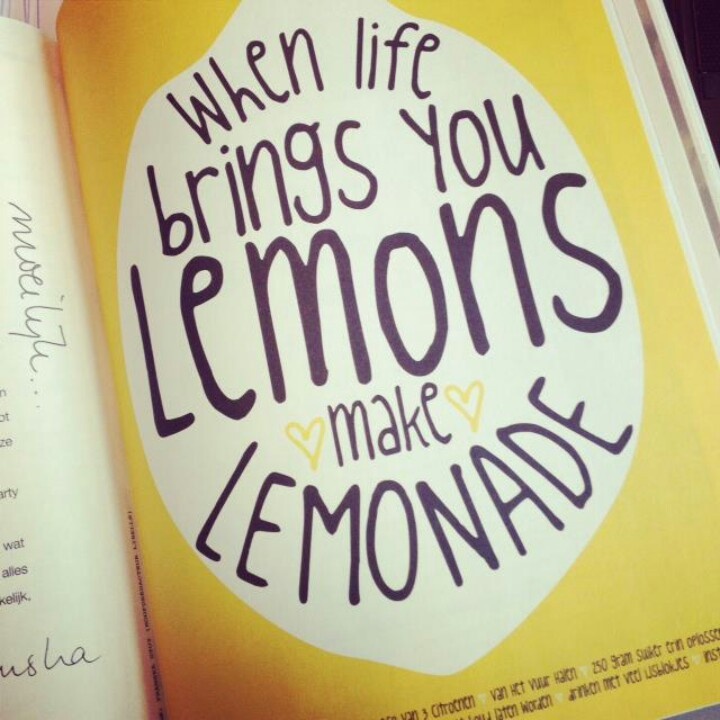 moeilijk...
n
ot
ze
arty
wat
alles
kelijk,
When life
brings you
Lemons
make
LEMONADE
van 3 citroenen van het vuur halen 250 gram suiker erin oplossen
koud laten worden drinken met veel ijsblokjes